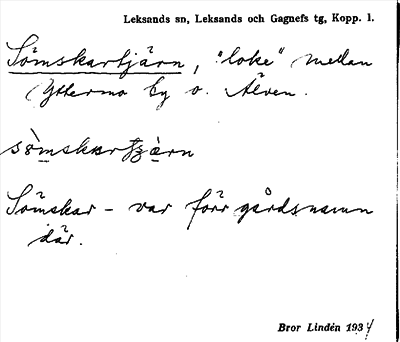 Leksands sn, Leksands och Gagnefs tg, Kopp. l.
Sömskartjärn, "loke" mellan
Yttermo by o. Älven.
sömskartjärn
Sömskar - var förr gårdsnamn
där.
Bror Lindén 1934